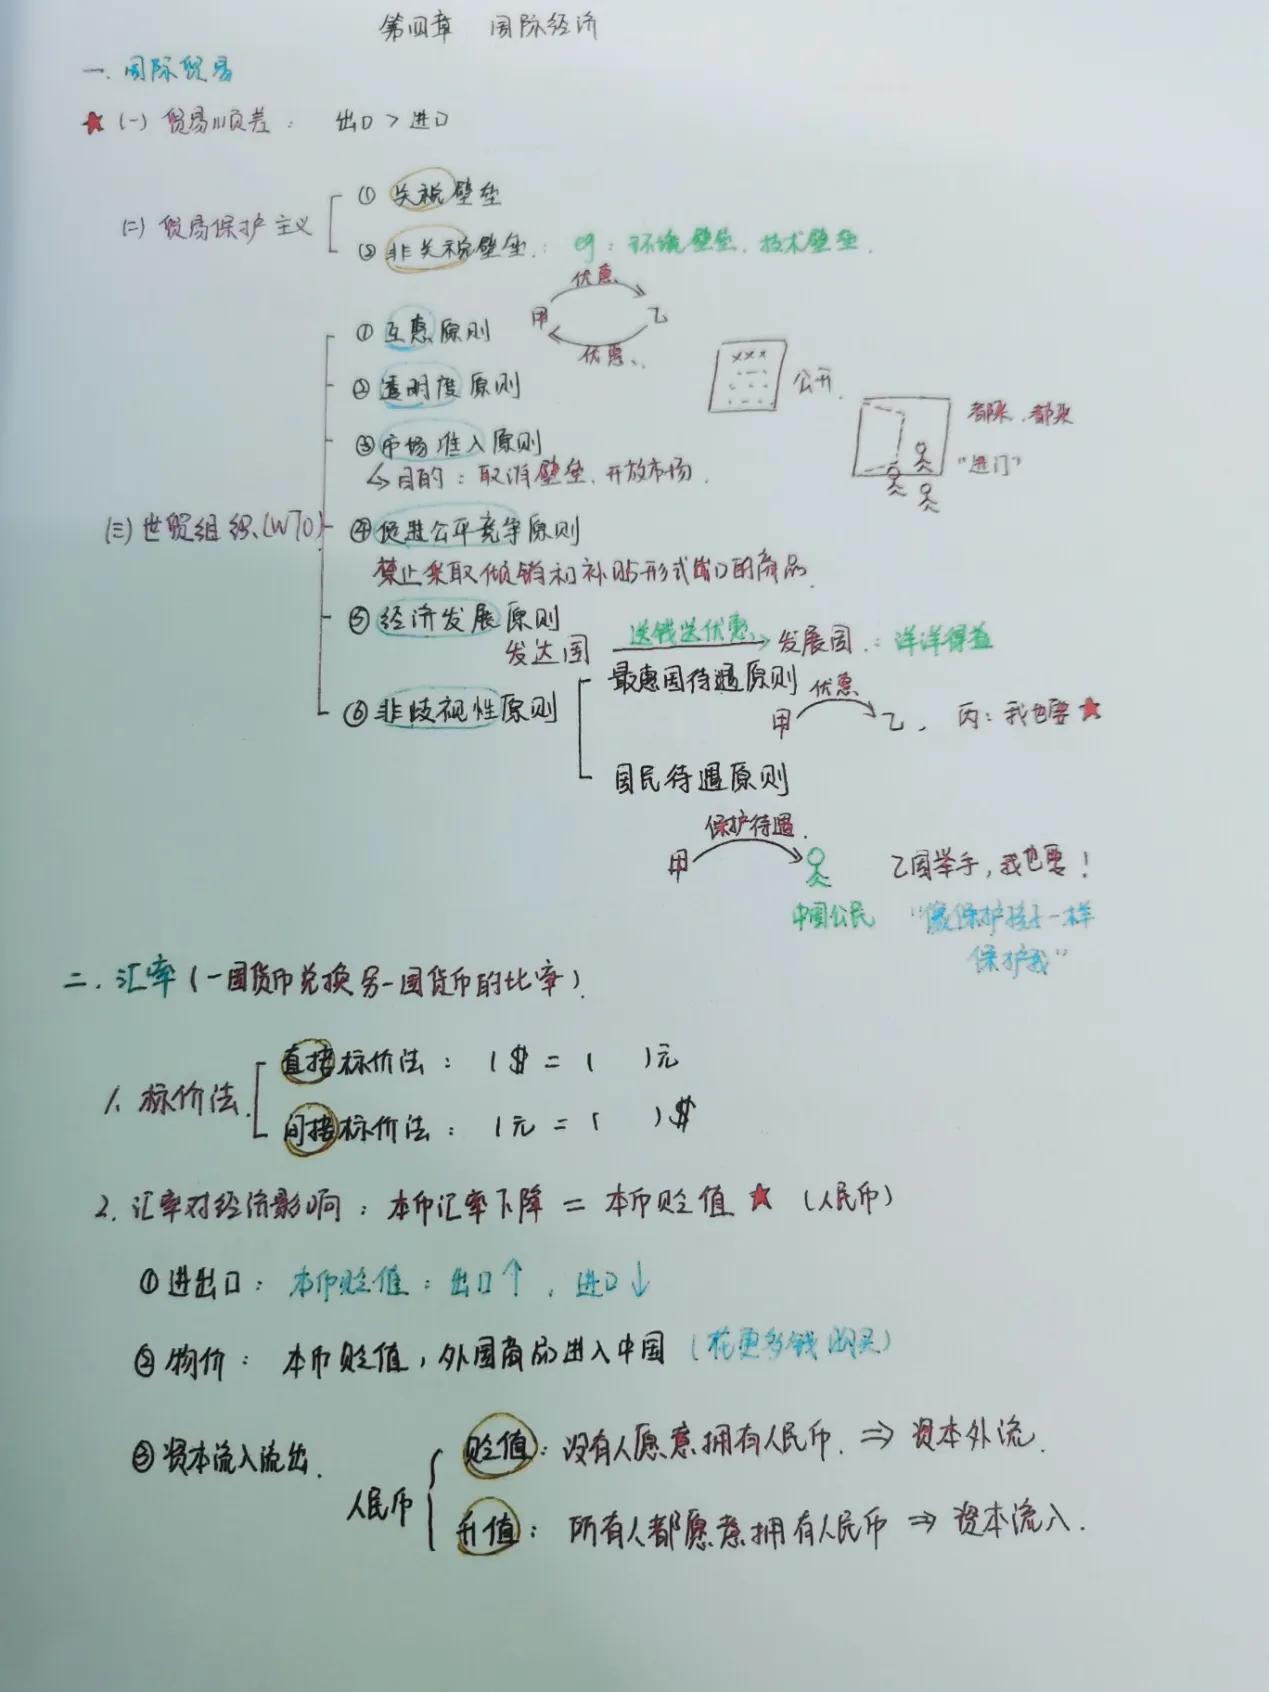 第四章 国际经济
一. 国际贸易
★ (一) 贸易顺差: 出口 > 进口
(二) 贸易保护主义
① 关税壁垒
② 非关税壁垒: eg: 环境壁垒、技术壁垒.
(三) 世贸组织(WTO)
① 互惠原则
优惠
甲 乙
优惠
② 透明度原则
××× 公开
③ 市场准入原则
都来、都买
"进门"
↳ 目的: 取消壁垒、开放市场.
④ 促进公平竞争原则
禁止采取倾销和补贴形式出口的商品.
⑤ 经济发展原则
发达国 送钱送优惠 → 发展国: 洋洋得益
⑥ 非歧视性原则
最惠国待遇原则
优惠
甲 乙, 丙: 我也要 ★
国民待遇原则
保护待遇.
甲 乙国举手, 我也要!
中国公民 "像保护孩子一样
保护我"
二. 汇率 (一国货币兑换另一国货币的比率).
1. 标价法
直接标价法: 1$ = ( )元
间接标价法: 1元 = ( )$
2. 汇率对经济影响: 本币汇率下降 = 本币贬值 ★ (人民币)
① 进出口: 本币贬值: 出口↑, 进口↓
② 物价: 本币贬值, 外国商品进入中国 (花更多钱购买)
③ 资本流入流出.
人民币
贬值: 没有人愿意拥有人民币. ⇒ 资本外流.
升值: 所有人都愿意拥有人民币 ⇒ 资本流入.